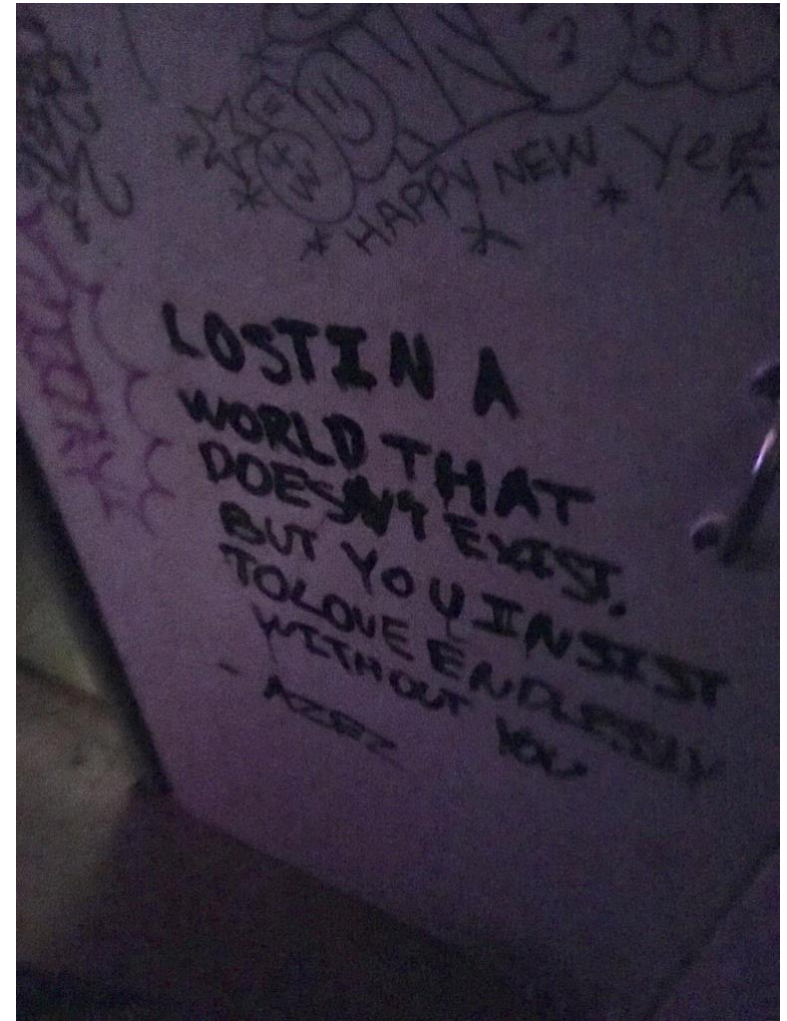 HAPPY NEW YeA
LOST IN A
WORLD THAT
DOESN'T EXIST.
BUT YOU INSIST
TO LOVE ENDLESSLY
WITHOUT YOU